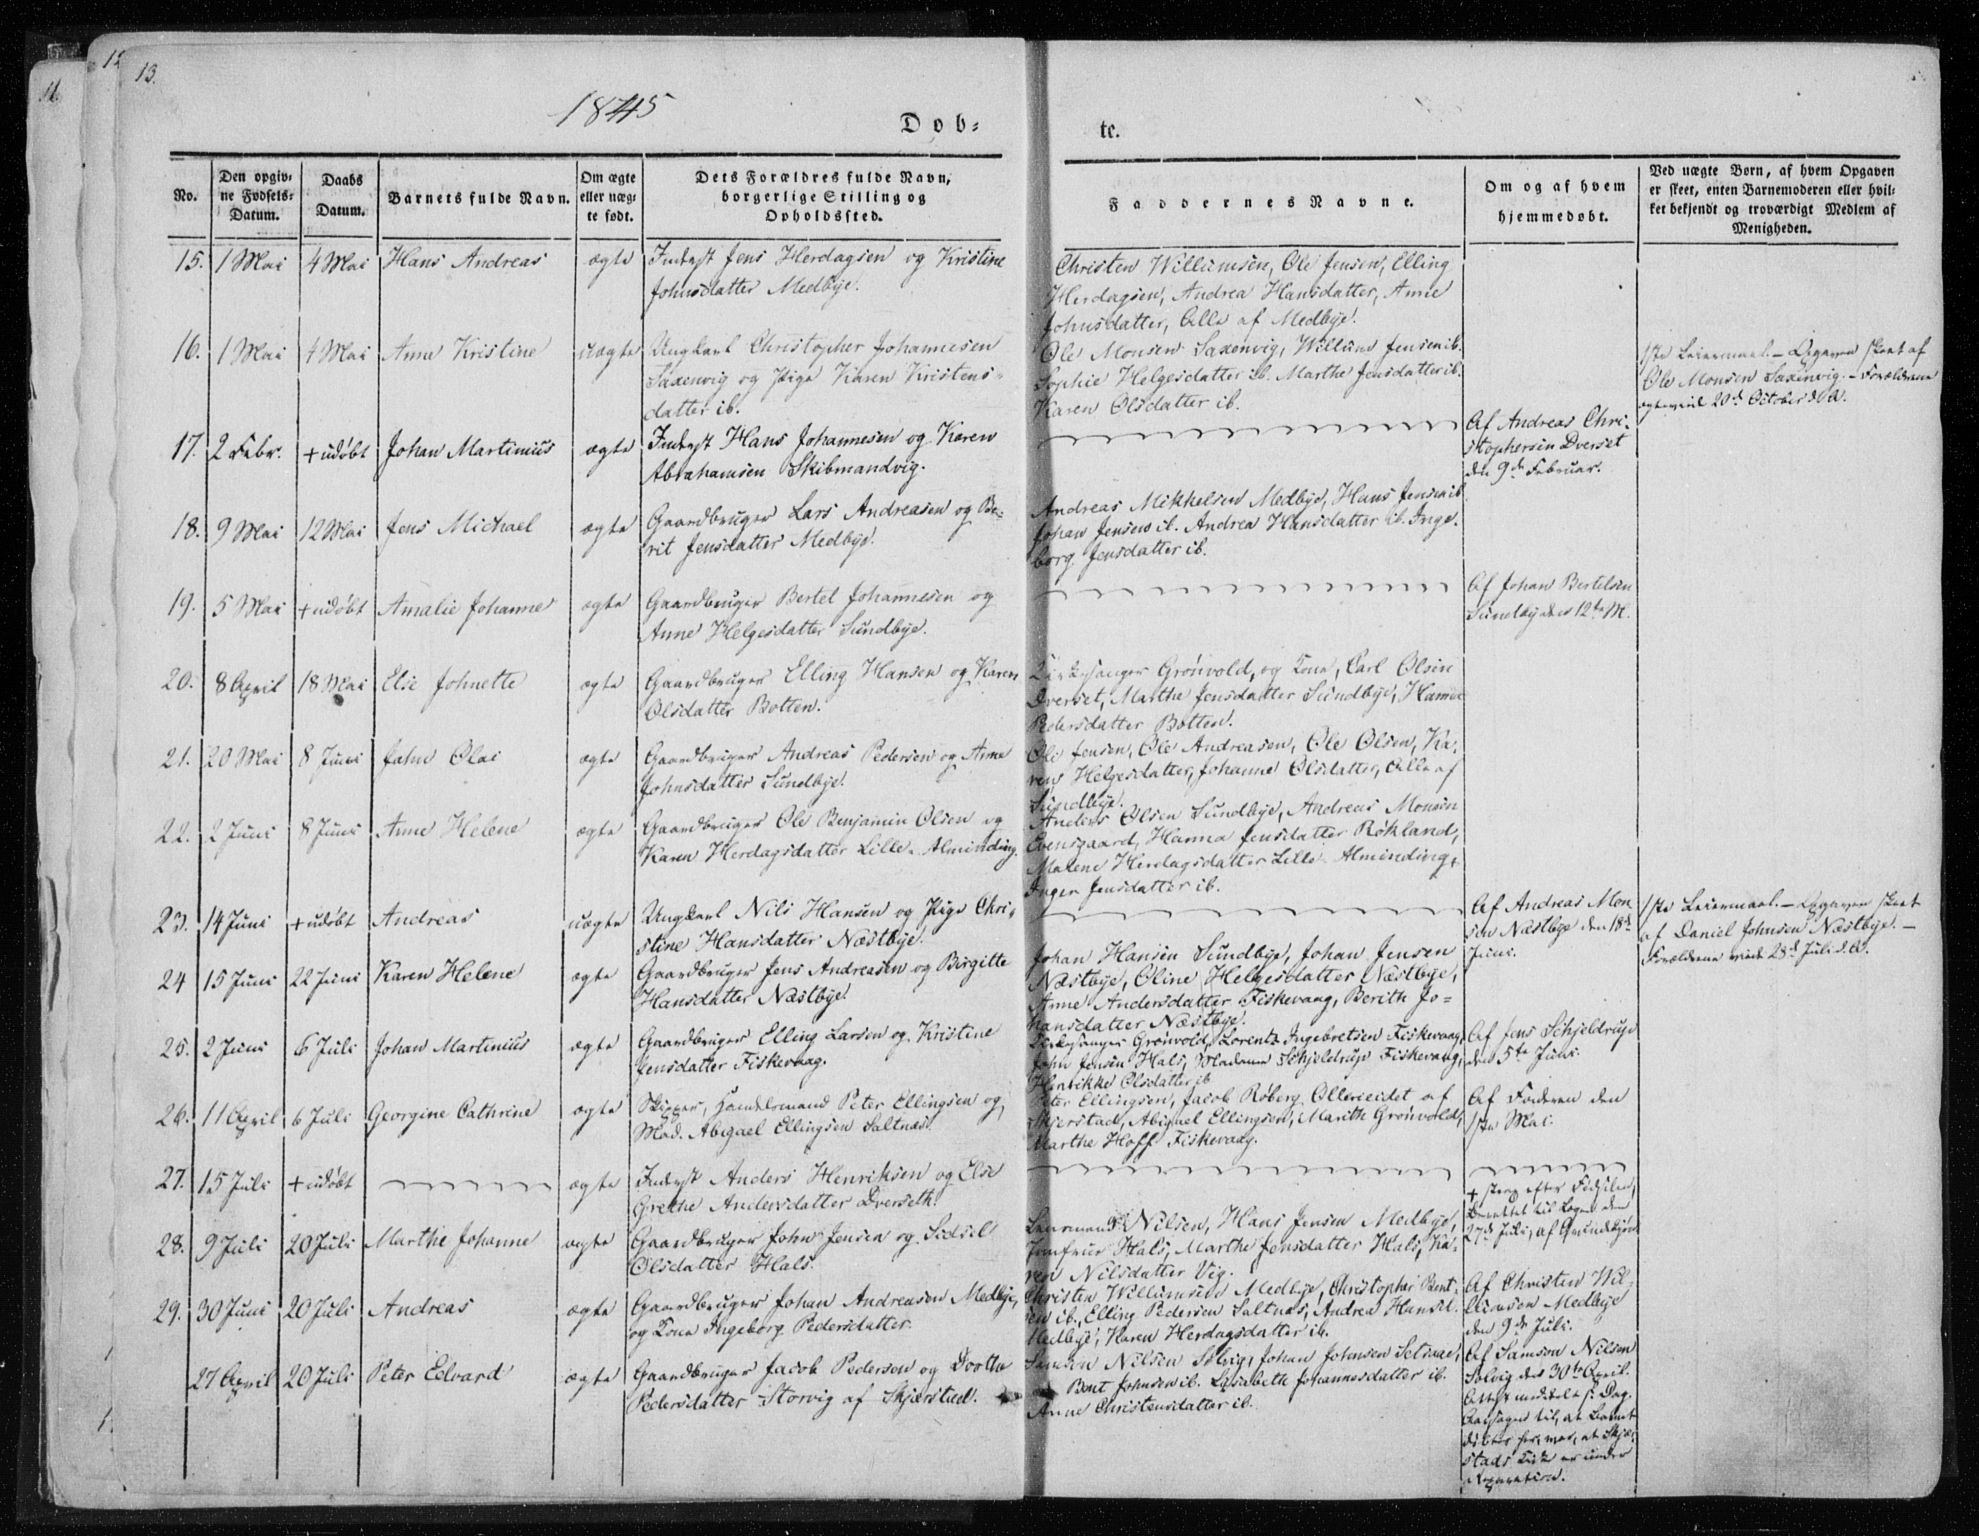 11.
12
13.
1845
Døb-
te.
No.
Den opgiv-
ne Fødsels-
Datum.
Daabs
Datum.
Barnets fulde Navn.
Om ægte
eller uæg-
te født.
Dets Forældres fulde Navn,
borgerlige Stilling og
Opholdssted.
Faddernes Navne.
Om og af hvem
hjemmedøbt.
Ved uægte Børn, af hvem Opgaven
er skeet, enten Barnemoderen eller hvil-
ket bekjendt og troværdigt Medlem af
Menigheden.
15. 1 Mai 4 Mai Hans Andreas ægte Inderst Jens Herdagsen og Kristine
Johnsdatter Medbye.
Christen Willumsen, Ole Jensen, Elling
Herdagsen, Andrea Hansdatter, Anne
Johnsdatter, Alle af Medbye.
16. 1 Mai 4 Mai Anne Kristine uægte Ungkarl Christopher Johannesen
Saxenvig og Pige Karen Kristens-
datter ib.
Ole Monsen Saxenvig, Willum Jensen ib.
Sophie Helgesdatter ib. Marthe Jensdatter ib.
Karen Olsdatter ib.
1ste Leiermaal. - Opgaven skeet af
Ole Monsen Saxenvig. - Forældrene
20de October d. A.
17. 2 Febr. + udøbt Johan Martinus ægte Inderst Hans Johannesen og Karen
Abrahamsen Skibmandvig.
Af Andreas Chri-
stophersen Dverset
den 9de Februar.
18. 9 Mai 12 Mai Jens Michael ægte Gaardbruger Lars Andreasen og Be-
rit Jensdatter Medbye.
Andreas Mikkelsen Medbye, Hans Jensen ib
Johan Jensen ib. Andrea Hansdatter ib. Inge-
borg Jensdatter ib.
19. 5 Mai + udøbt Amalie Johanne ægte Gaardbruger Bertel Johannesen og
Anne Helgesdatter Sundbye.
Af Johan Bertelsen
Sundby den 12te M.
20. 8 April 18 Mai Else Johnette ægte Gaardbruger Elling Hansen og Karen
Olsdatter Botten.
Kirkesanger Grønvold, og Kone, Carl Olsen
Dverset, Marthe Jensdatter Sundbye, Hanna
Pedersdatter Botten.
21. 20 Mai 8 Juni John Olai ægte Gaardbruger Andreas Pedersen og Anne
Johnsdatter Sundbye.
Ole Jensen, Ole Andreasen, Ole Olsen, Ka-
ren Helgesdatter, Johanne Olsdatter, Alle af
Sundbye.
22. 2 Juni 8 Juni Anne Helene ægte Gaardbruger Ole Benjamin Olsen og
Karen Herdagsdatter Lille-Alminding.
Anders Olsen Sundbye, Andreas Monsen
Evensgaard, Hanna Jensdatter Røkland,
Malene Herdagsdatter Lille-Alminding,
Inger Jensdatter ib.
23. 14 Juni + udøbt Andreas uægte Ungkarl Nils Hansen og Pige Chri-
stine Hansdatter Næstbye.
Af Andreas Mon
sen Næstbye den 18de
Juni.
1ste Leiermaal. - Opgaven skeet
af Daniel Johnsen Næstbye. -
Forældrene viede 28de Juli d. A.
24 15 Juni 22 Juni Karen Helene ægte Gaardbruger Jens Andreasen og Birgitte
Hansdatter Næstbye.
Johan Hansen Sundbye, Johan Jensen
Næstbye, Oline Helgesdatter Næstbye,
Anne Andersdatter Fiskevaag, Berith Jo-
hansdatter Næstbye.
25. 2 Juni 6 Juli Johan Martinius ægte Gaardbruger Elling Larsen og Kristine
Jensdatter Fiskevaag.
Kirkesanger Grønvold, Lorents Ingebretsen Fiskevaag,
John Jensen Hals, Madame Schjeldrup Fiskevaag,
Henrikke Olsdatter ib
Af Jens Schjeldrup
den 5te Juni.
26. 11 April 6 Juli Georgine Cathrine ægte Skipper, Handelsmand Peter Ellingsen og
Mad. Abigael Ellingsen Saltnæs.
Peter Ellingsen, Jacob Røberg af
Skjerstad, Abigael Ellingsen, Marith Grønvold,
Marthe Hoff Fiskevaag.
Af Faderen den
1ste Mai.
27. 15 Juli + udøbt ægte Inderst Anders Henriksen og Else
Grethe Andersdatter Dverseth.
+ strax efter Fødselen,
Berettet til Bogen den
27de Juli, af
28. 9 Juli 20 Juli Marthe Johanne ægte Gaardbruger John Jensen og Sidsel
Olsdatter Hals.
Nilsen, Hans Jensen Medbye,
Jomfrue Hals, Marthe Jensdatter Hals, Ka-
ren Nilsdatter Vig.
29. 30 Juni 20 Juli Andreas ægte Gaardbruger Johan Andreasen Medbye,
og Kone Ingeborg Pedersdatter.
Christen Willumsen Medbye, Christopher Bent-
sen ib., Elling Pedersen Saltnes, Andrea Hansd.
Medbye, Karen Herdagsdatter ib.
Af Christen Wil-
lumsen Medbye
den 9de Juli.
27 April 20 Juli Peter Edvard ægte Gaardbruger Jacob Pedersen og Dorthe
Pedersdatter Storvig af Skjærstad.
Samson Nilsen Solvig, Johan Johnsen Setsaae,
Bent Johnsen ib. Lisabeth Johannesdatter ib.
Anne Christensdatter ib.
Af Samson Nilsen
Solvig den 30te April.
Attest meddelt s. Dag.
Aarsagen til, at Barnet
døbtes her, var, at Skjer-
stads Kirke er under
Reparation.